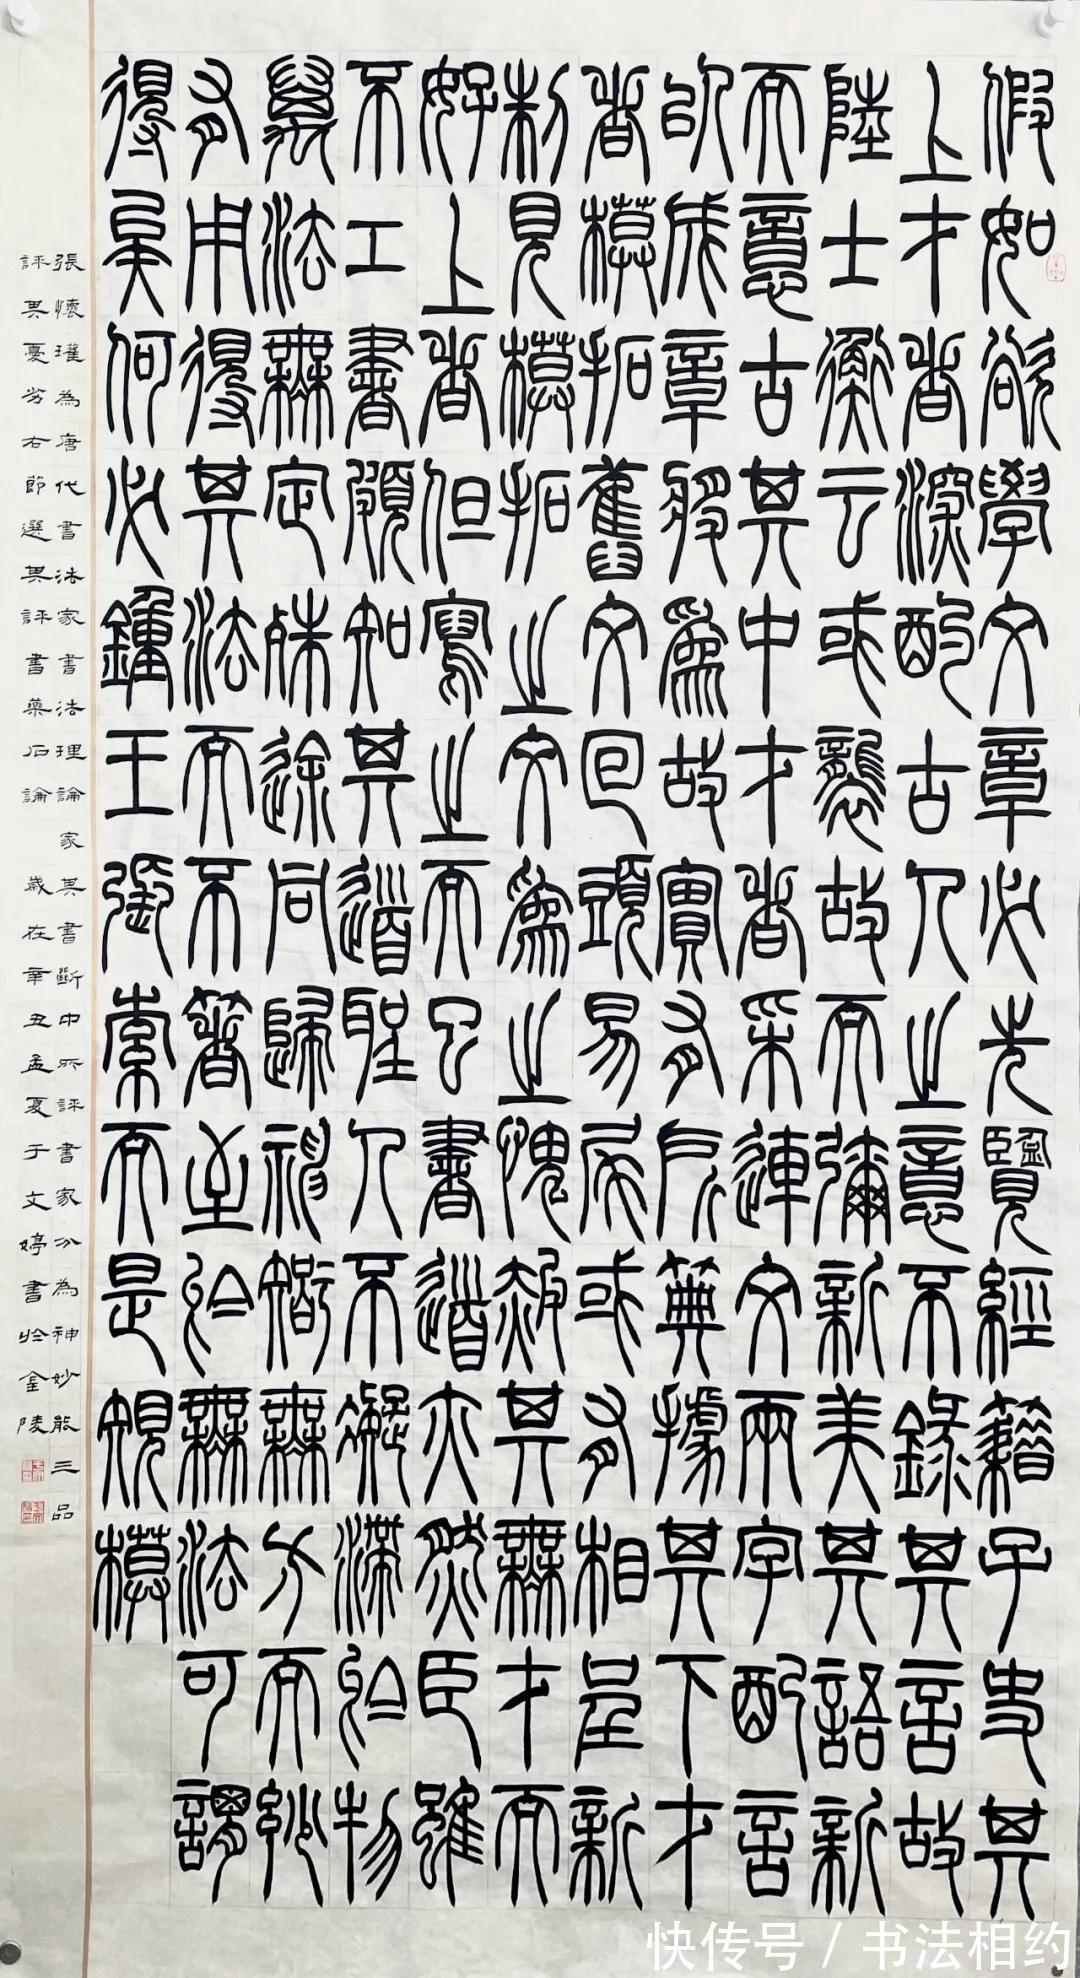 假如欲學文章必先覽經籍子史其
上才者深酌古人之意不錄其言故
陸士衡云或襲故而彌新美其語新
而意古其中才者采連文兩字配言
以成章將爲故實有所典據其下才
者模拓舊文回頭易尾或有相呈新
制見模拓之文爲之愧赧其無才而
好上者但寫之而已書道亦然臣雖
不工書頗知其道聖人不凝滯於物
萬法無定殊途同歸神智無方而妙
有用得其法而不著至於無法可謂
得矣何必鍾王張索而是規模
張懷瓘為唐代書法家書法理論家其書斷中所評書家分為神妙能三品
評其憂劣右節選其評書藥石論 歲在辛丑孟夏于文婷書於金陵
快传号 / 书法相约